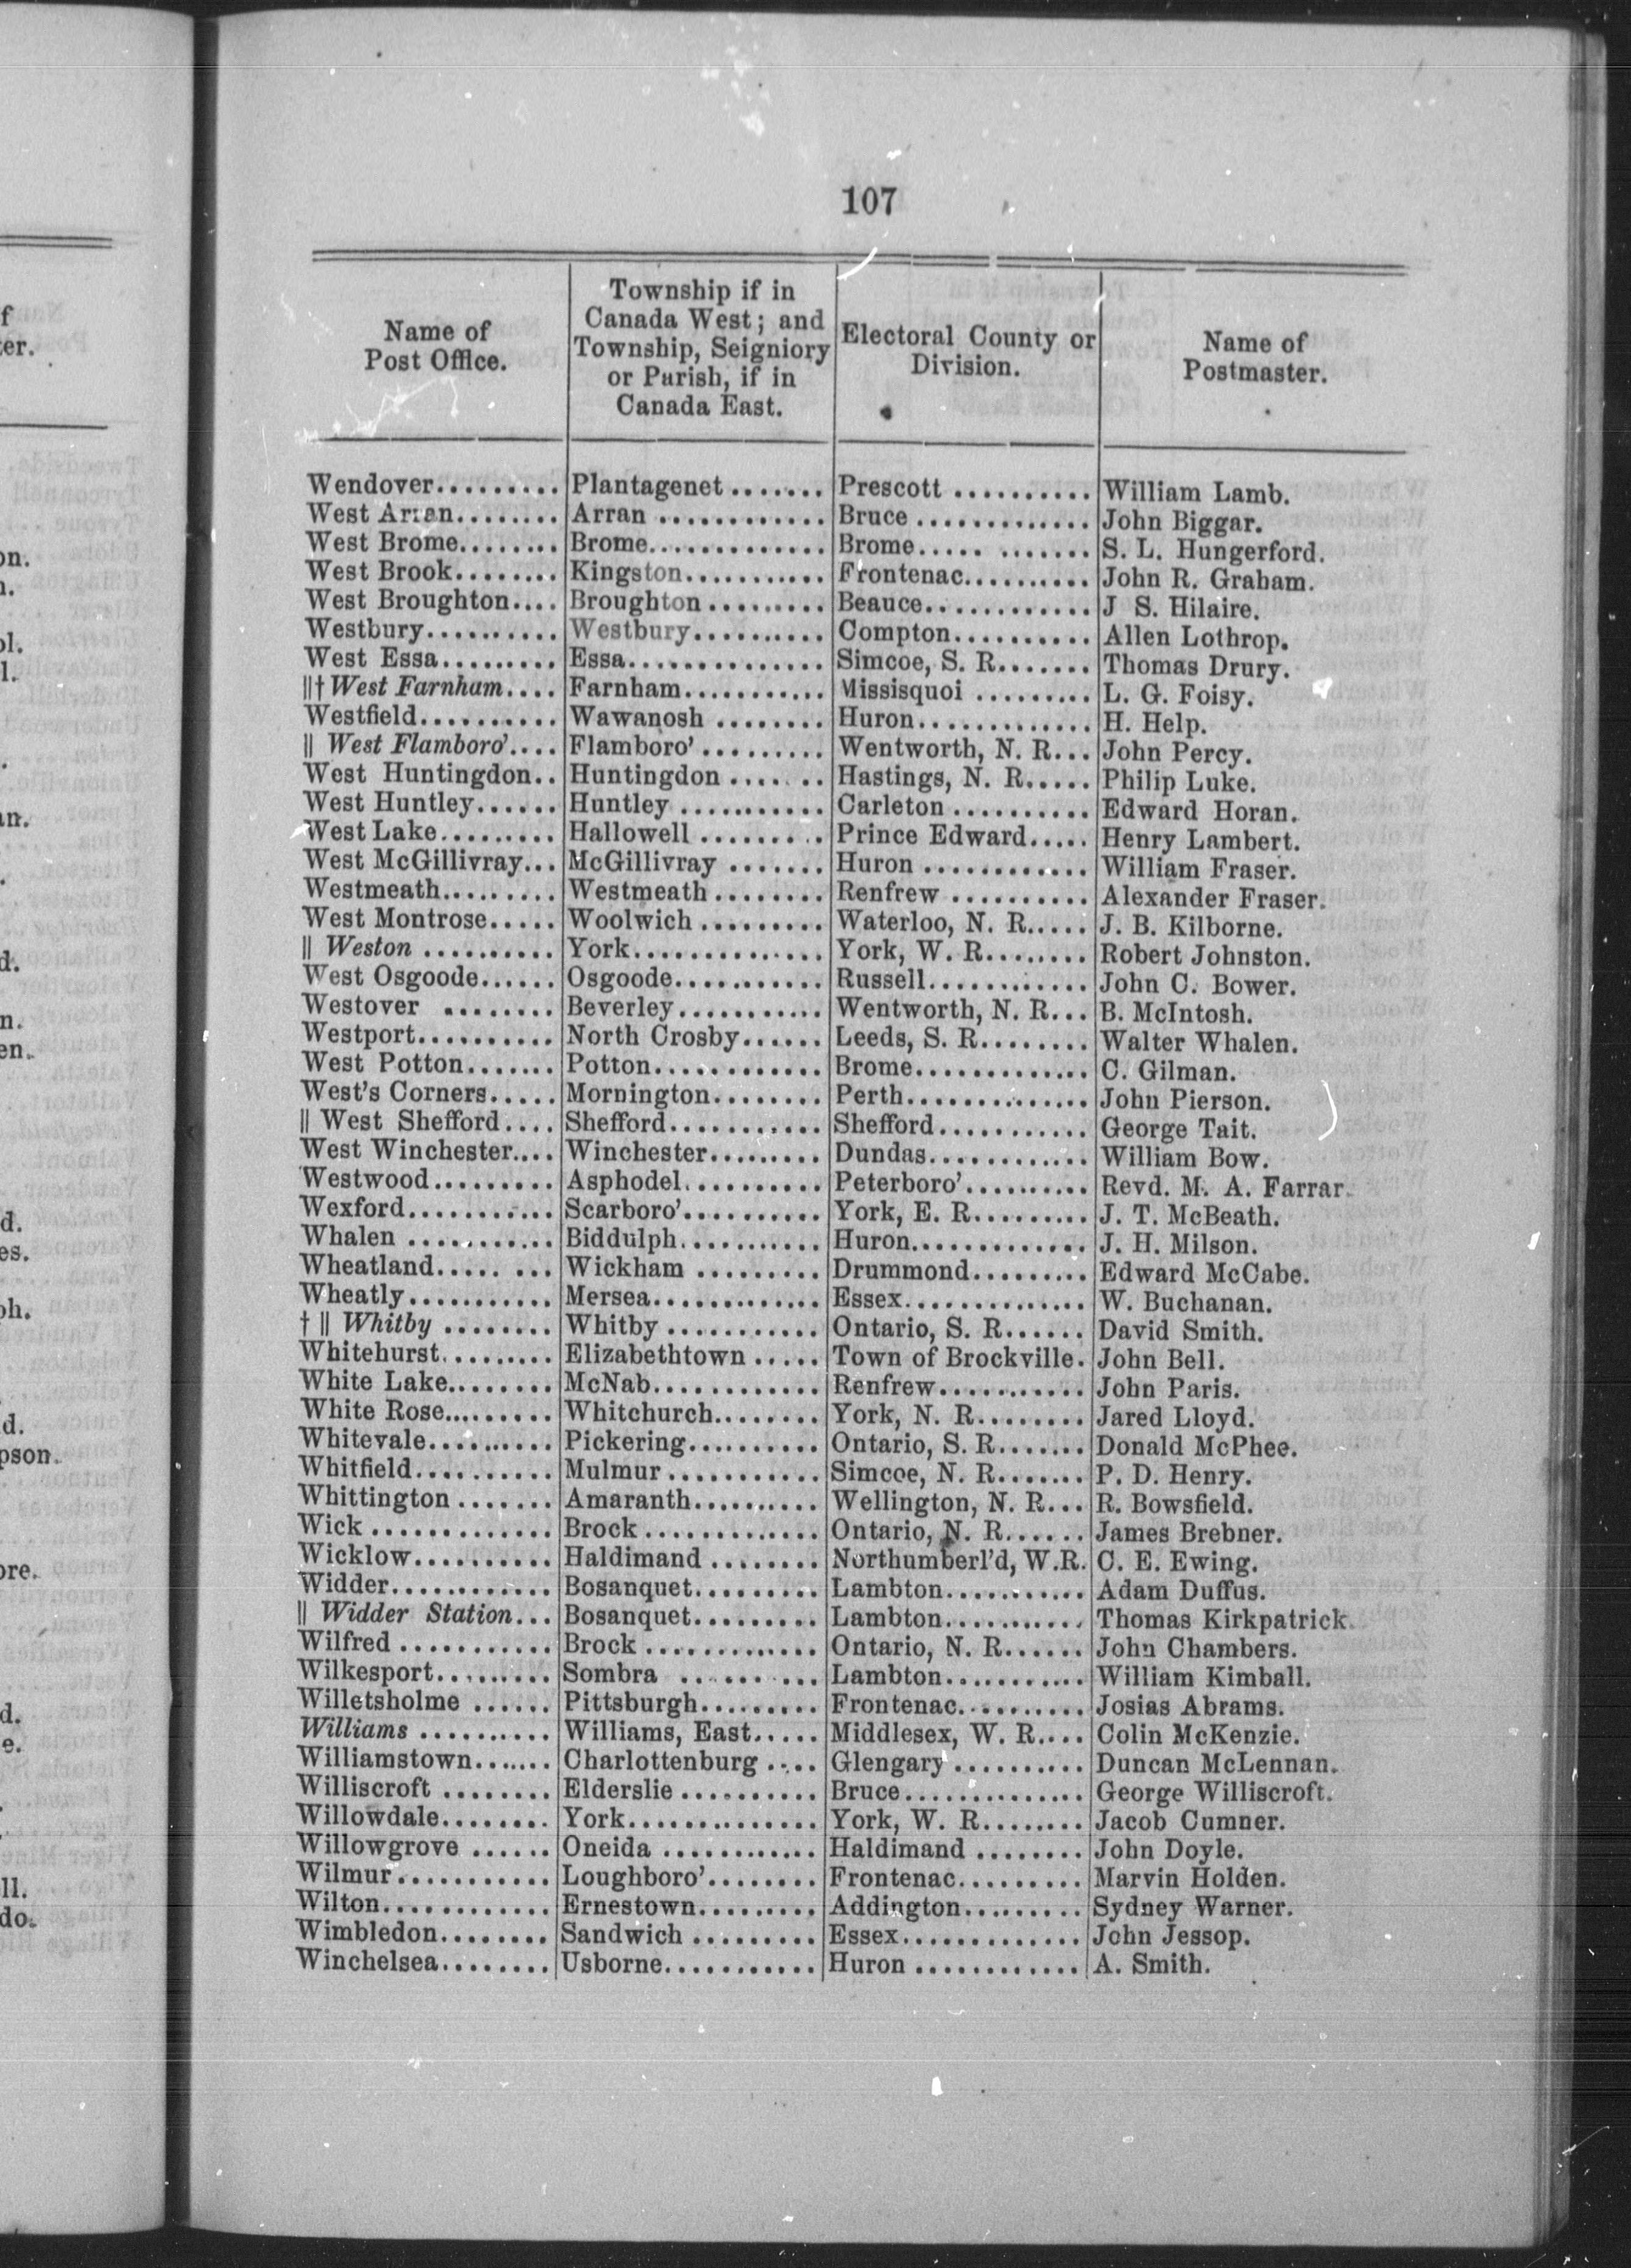 107
Name of Post Office. | Township if in Canada West; and Township, Seigniory or Parish, if in Canada East. | Electoral County or Division. | Name of Postmaster.
Wendover......... Plantagenet....... Prescott.......... William Lamb.
West Arran........ Arran............ Bruce............. John Biggar.
West Brome........ Brome............. Brome............ S. L. Hungerford.
West Brook........ Kingston........... Frontenac.......... John R. Graham.
West Broughton.... Broughton......... Beauce............ J S. Hilaire.
Westbury.......... Westbury.......... Compton.......... Allen Lothrop.
West Essa......... Essa............... Simcoe, S. R....... Thomas Drury.
||† West Farnham.... Farnham........... Missisquoi......... L. G. Foisy.
Westfield.......... Wawanosh........ Huron............. H. Help.
|| West Flamboro'.... Flamboro'......... Wentworth, N. R... John Percy.
West Huntingdon.. Huntingdon....... Hastings, N. R..... Philip Luke.
West Huntley...... Huntley........... Carleton.......... Edward Horan.
West Lake......... Hallowell......... Prince Edward..... Henry Lambert.
West McGillivray... McGillivray....... Huron............ William Fraser.
Westmeath......... Westmeath........ Renfrew.......... Alexander Fraser.
West Montrose..... Woolwich......... Waterloo, N. R..... J. B. Kilborne.
|| Weston.......... York.............. York, W. R........ Robert Johnston.
West Osgoode...... Osgoode........... Russell............ John C. Bower.
Westover........ Beverley........... Wentworth, N. R... B. McIntosh.
Westport.......... North Crosby...... Leeds, S. R........ Walter Whalen.
West Potton....... Potton............ Brome............. C. Gilman.
West's Corners..... Mornington........ Perth.............. John Pierson.
|| West Shefford.... Shefford........... Shefford........... George Tait.
West Winchester.... Winchester......... Dundas............ William Bow.
Westwood......... Asphodel.......... Peterboro'.......... Revd. M. A. Farrar.
Wexford........... Scarboro'.......... York, E. R......... J. T. McBeath.
Whalen........... Biddulph........... Huron............. J. H. Milson.
Wheatland........ Wickham......... Drummond......... Edward McCabe.
Wheatly........... Mersea............. Essex.............. W. Buchanan.
† || Whitby........ Whitby............ Ontario, S. R...... David Smith.
Whitehurst......... Elizabethtown..... Town of Brockville. John Bell.
White Lake........ McNab............ Renfrew........... John Paris.
White Rose......... Whitchurch........ York, N. R........ Jared Lloyd.
Whitevale.......... Pickering.......... Ontario, S. R....... Donald McPhee.
Whitfield.......... Mulmur........... Simcoe, N. R....... P. D. Henry.
Whittington....... Amaranth.......... Wellington, N. R... R. Bowsfield.
Wick............. Brock............. Ontario, N. R...... James Brebner.
Wicklow.......... Haldimand........ Northumberl'd, W.R. C. E. Ewing.
Widder............ Bosanquet......... Lambton........... Adam Duffus.
|| Widder Station... Bosanquet......... Lambton........... Thomas Kirkpatrick.
Wilfred........... Brock............. Ontario, N. R...... John Chambers.
Wilkesport......... Sombra.......... Lambton........... William Kimball.
Willetsholme...... Pittsburgh......... Frontenac.......... Josias Abrams.
Williams.......... Williams, East..... Middlesex, W. R.... Colin McKenzie.
Williamstown....... Charlottenburg.... Glengary.......... Duncan McLennan.
Williscroft........ Elderslie.......... Bruce.............. George Williscroft.
Willowdale........ York.............. York, W. R........ Jacob Cumner.
Willowgrove...... Oneida............ Haldimand........ John Doyle.
Wilmur........... Loughboro'........ Frontenac......... Marvin Holden.
Wilton............ Ernestown......... Addington......... Sydney Warner.
Wimbledon........ Sandwich......... Essex............. John Jessop.
Winchelsea........ Usborne........... Huron............ A. Smith.